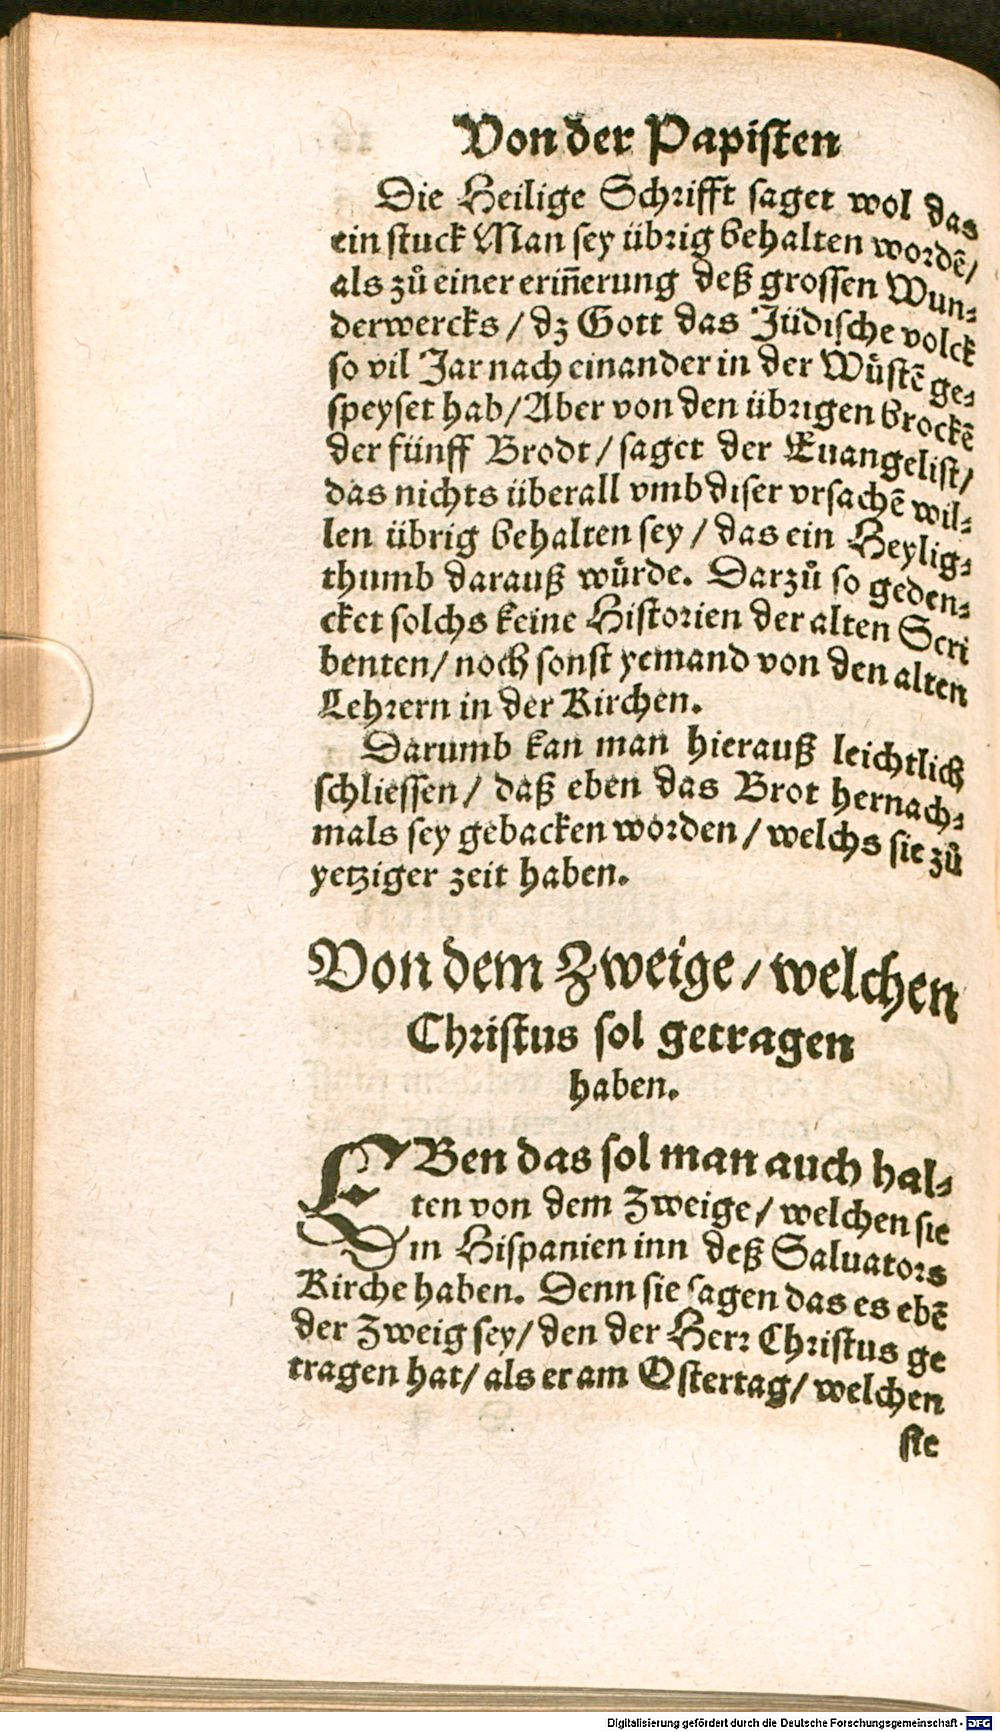 Von der Papisten
Die Heilige Schrifft saget wol das
ein stuck Man sey übrig behalten wordẽ/
als zů einer eriñerung deß grossen Wun⸗
derwercks / dz Gott das Jüdische volck
so vil Jar nach einander in der Wuͤstẽ ge⸗
speyset hab/ Aber von den übrigen brockẽ
der fünff Brodt/ saget der Euangelist/
das nichts überall vmb diser vrsachẽ wil⸗
len übrig behalten sey / das ein Heylig⸗
thumb darauß wuͤrde. Darzů so geden⸗
cket solchs keine Historien der alten Scri
benten/ noch sonst yemand von den alten
Lehrern in der Kirchen.
Darumb kan man hierauß leichtlich
schliessen/ daß eben das Brot hernach⸗
mals sey gebacken worden/ welchs sie zů
yetziger zeit haben.
Von dem Zweige/ welchen
Christus sol getragen
haben.
EBen das sol man auch hal⸗
ten von dem Zweige/ welchen sie
in Hispanien inn deß Saluators
Kirche haben. Denn sie sagen das es ebẽ
der Zweig sey/ den der Herr Christus ge
tragen hat/ als er am Ostertag/ welchen
sie
Digitalisierung gefördert durch die Deutsche Forschungsgemeinschaft - DFG